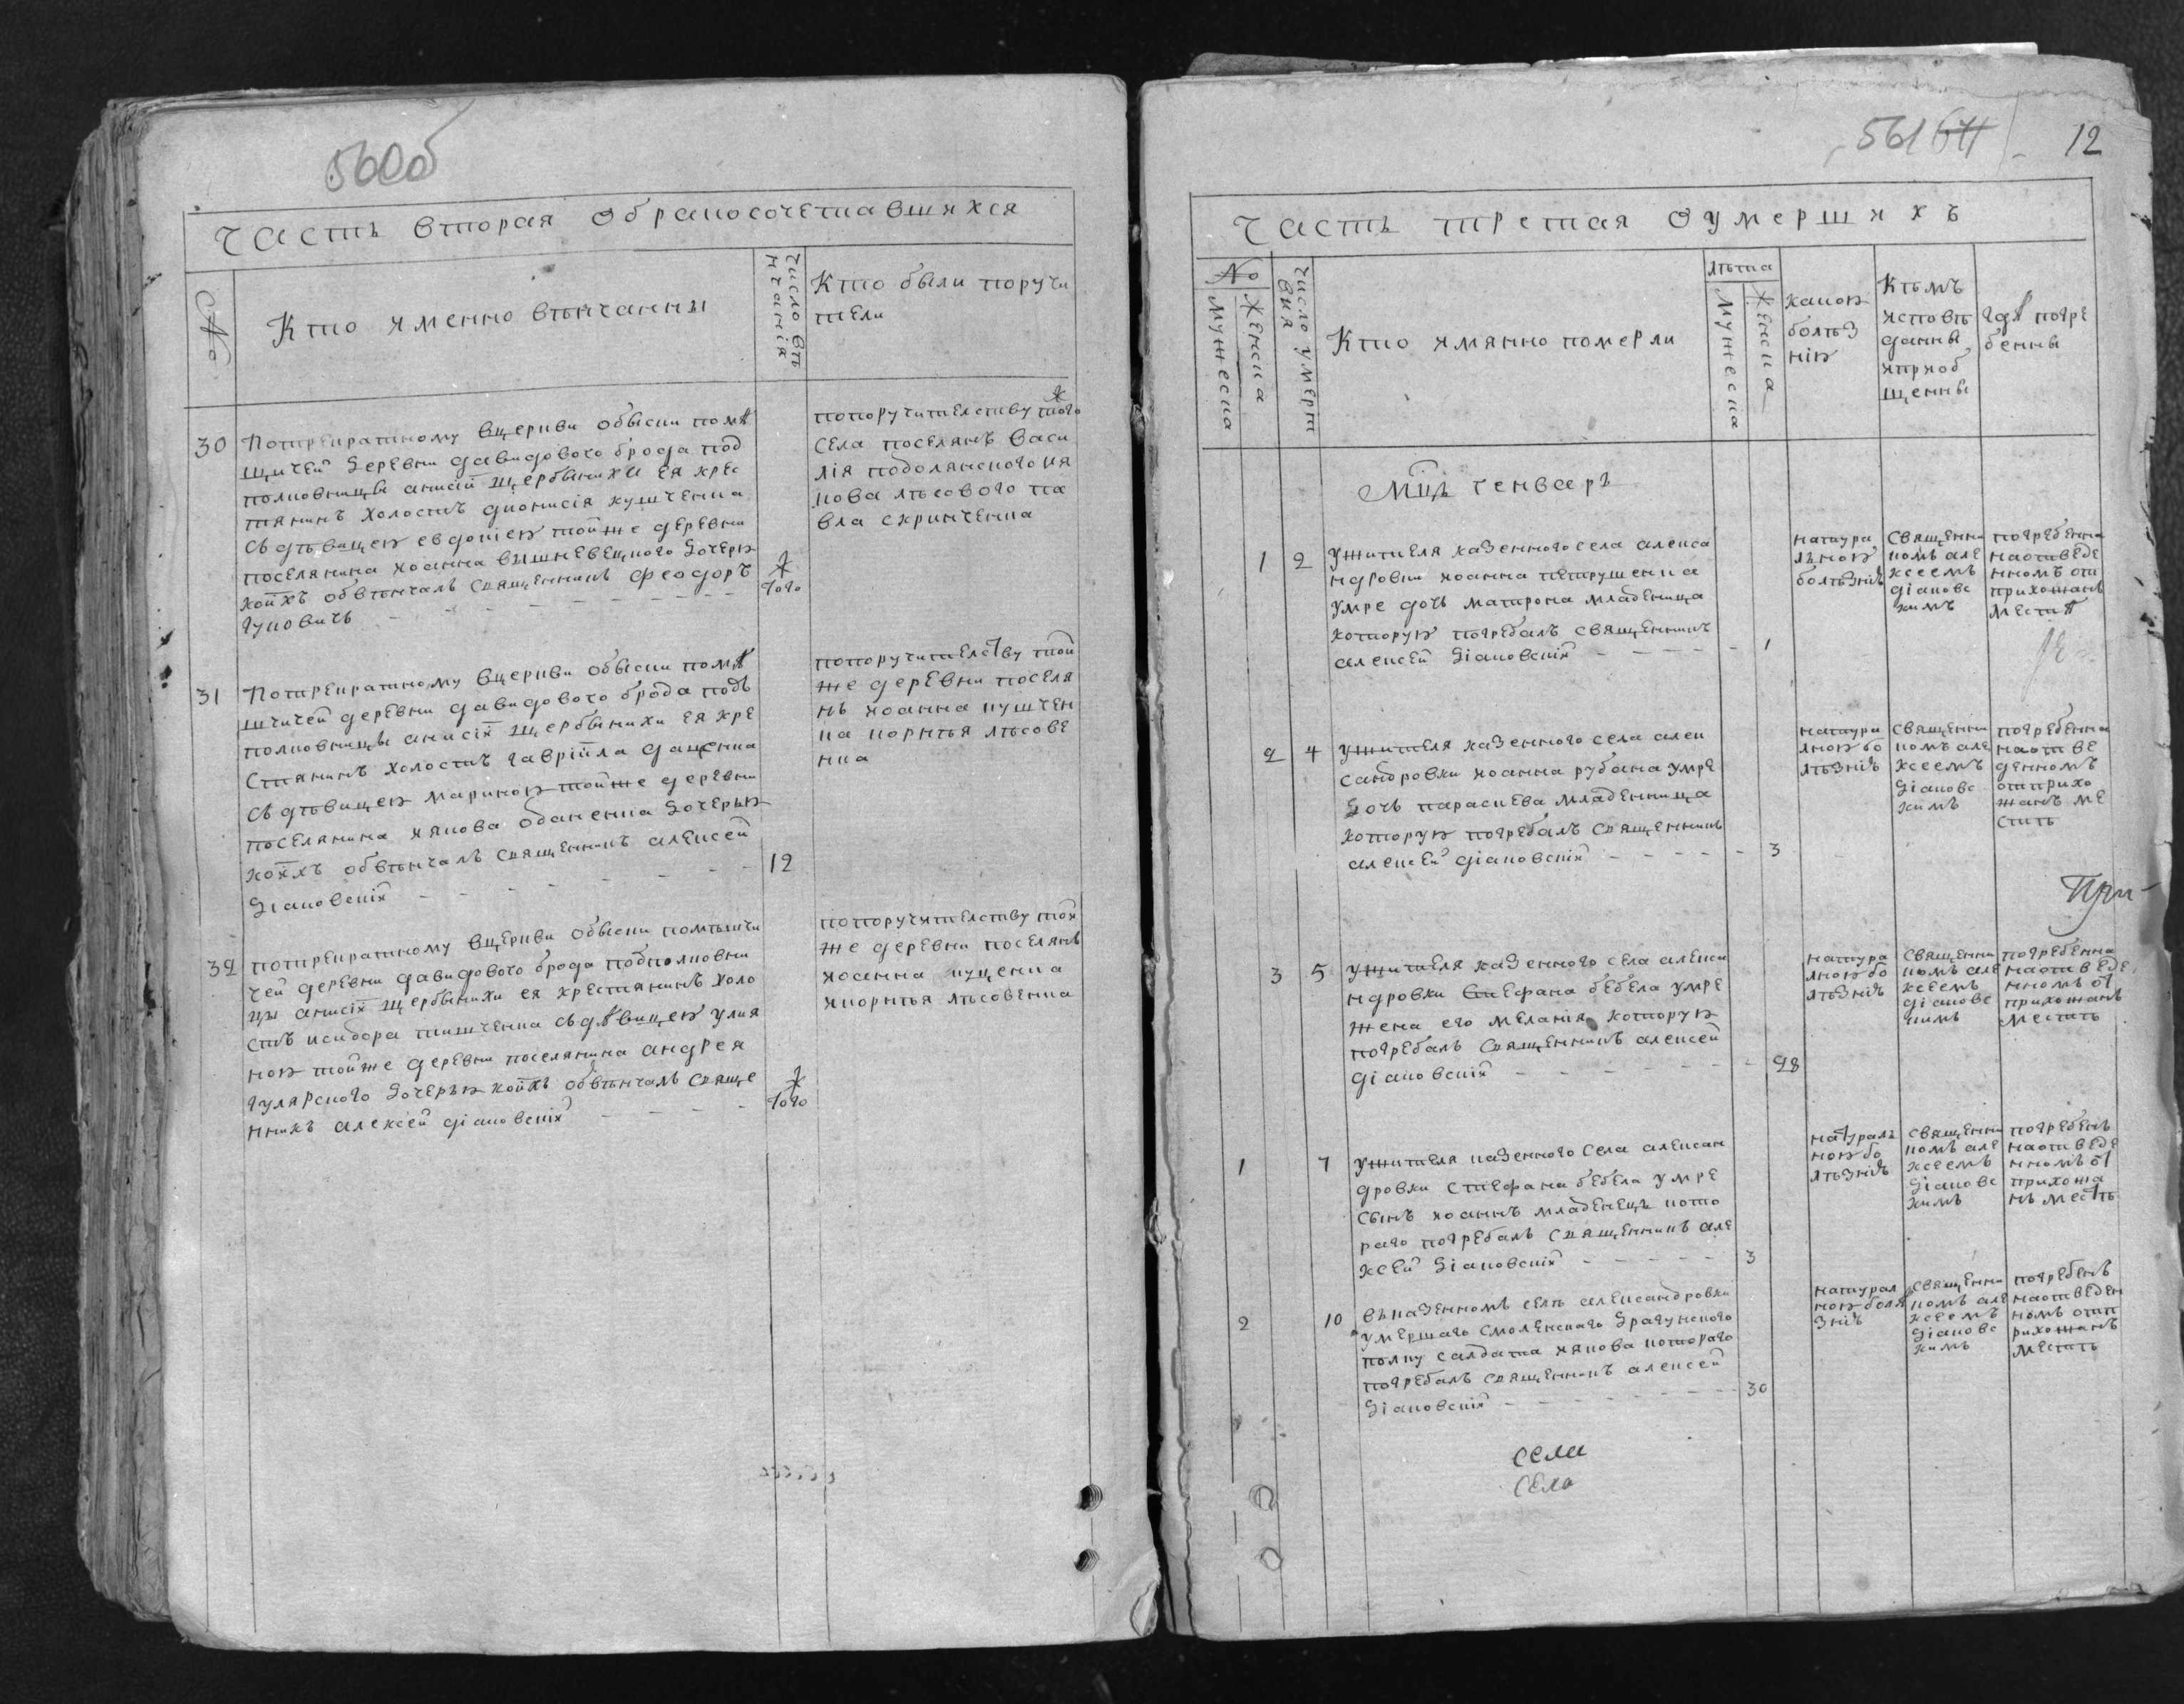 560об
Часть вторая обракосочетавшихся
№
Кто именно венчанны
Число вѣнчанія
Кто были поручи
тели
30
Потреκратному вцеркви обыски помѣ
щичей деревни давидового брода под
полковницы анисіи щербинихи ея крес
тянинъ холостъ дионисія кушченка
съ дѣвицею евдокіею тойже деревни
поселянина иоанна вышневецкого дочерю
коихъ обвѣнчалъ священникъ феодоръ
гуковичъ
того
попоручителству того
села поселянъ васи
лія подолянского ия
кова лѣсового па
вла скринченка
31
Потрекратному вцеркви обыски помѣ
щичей деревни давидового брода подъ
полковницы анисіи щербинихи ея кре
стянинъ холостъ гавріила даценка
съ дѣвицею мариною тойже деревни
поселянина иякова обаненка дочерью
коихъ обвѣнчалъ священникъ алексей
діаковскій
12
попоручителству той
же деревни поселя
нъ иоанна кушчен
ка корнѣя лѣсове
нка
32
потрекратному вцеркви обыски помѣщи
чей деревни давидового брода подполковни
цы анисіи щербинихи ея крестянинъ холо
стъ исидора тишченка съ дѣвицею улия
ною тойже деревни поселянина андрея
гулярского дочерью коихъ обвѣнчалъ свяще
нникъ алексей діаковскій
того
попоручителству той
же деревни поселянъ
иоанна куценка
икорнѣя лѣсовенка
561 12
Часть третая оумершихъ
№
мужеска
женска
число умертвия
Кто имянно померли
лѣта
мужеска
женска
какою
болѣз
нію
Кѣмъ
исповѣ
данны
иприоб
щенны
гдѣ погре
бенны
Мць генваръ
1
2
Ужителя казенного села алекса
ндровки иоанна петрушенка
умре дочь матрона младеница
которую погребалъ священникъ
алексей діаковскій
1
натура
льною
болѣзнію
священни
комъ але
ксеемъ
діаковс
кимъ
погребенна
наотведе
нномъ от
прихожанъ
местѣ
2
4
Ужителя казенного села алек
сандровки иоанна рубана умре
дочь параскева младенница
которую погребалъ священникъ
алексей діаковскій
3
натура
лною бо
лѣзнію
священни
комъ але
ксеемъ
діаковс
кимъ
погребенна
наотве
денномъ
отприхо
жанъ ме
стѣ
3
5
Ужителя казенного села алекса
ндровки стефана бебела умре
жена его меланія которую
погребалъ священникъ алексей
діаковскій
28
натура
лною бо
лѣзнію
священни
комъ але
ксеемъ
діаковс
кимъ
погребенна
наотведе
нномъ от
прихожанъ
местѣ
1
7
Ужителя казенного села алексан
дровки стефана бебела умре
сынъ иоаннъ младенецъ кото
раго погребалъ священникъ але
ксей діаковскій
3
натурал
ною бо
лѣзнію
священни
комъ але
ксеемъ
діаковс
кимъ
погребенъ
наотведе
нномъ от
прихожа
нъ местѣ
2
10
въказенномъ селѣ александровки
умершаго смоленскаго драгунского
полку салдата иякова котораго
погребалъ священникъ алексей
діаковскій
30
натурал
ною боля
знію
священни
комъ але
ксеемъ
діаковс
кимъ
погребенъ
наотведен
номъ отп
рихожанъ
местѣ
села
села